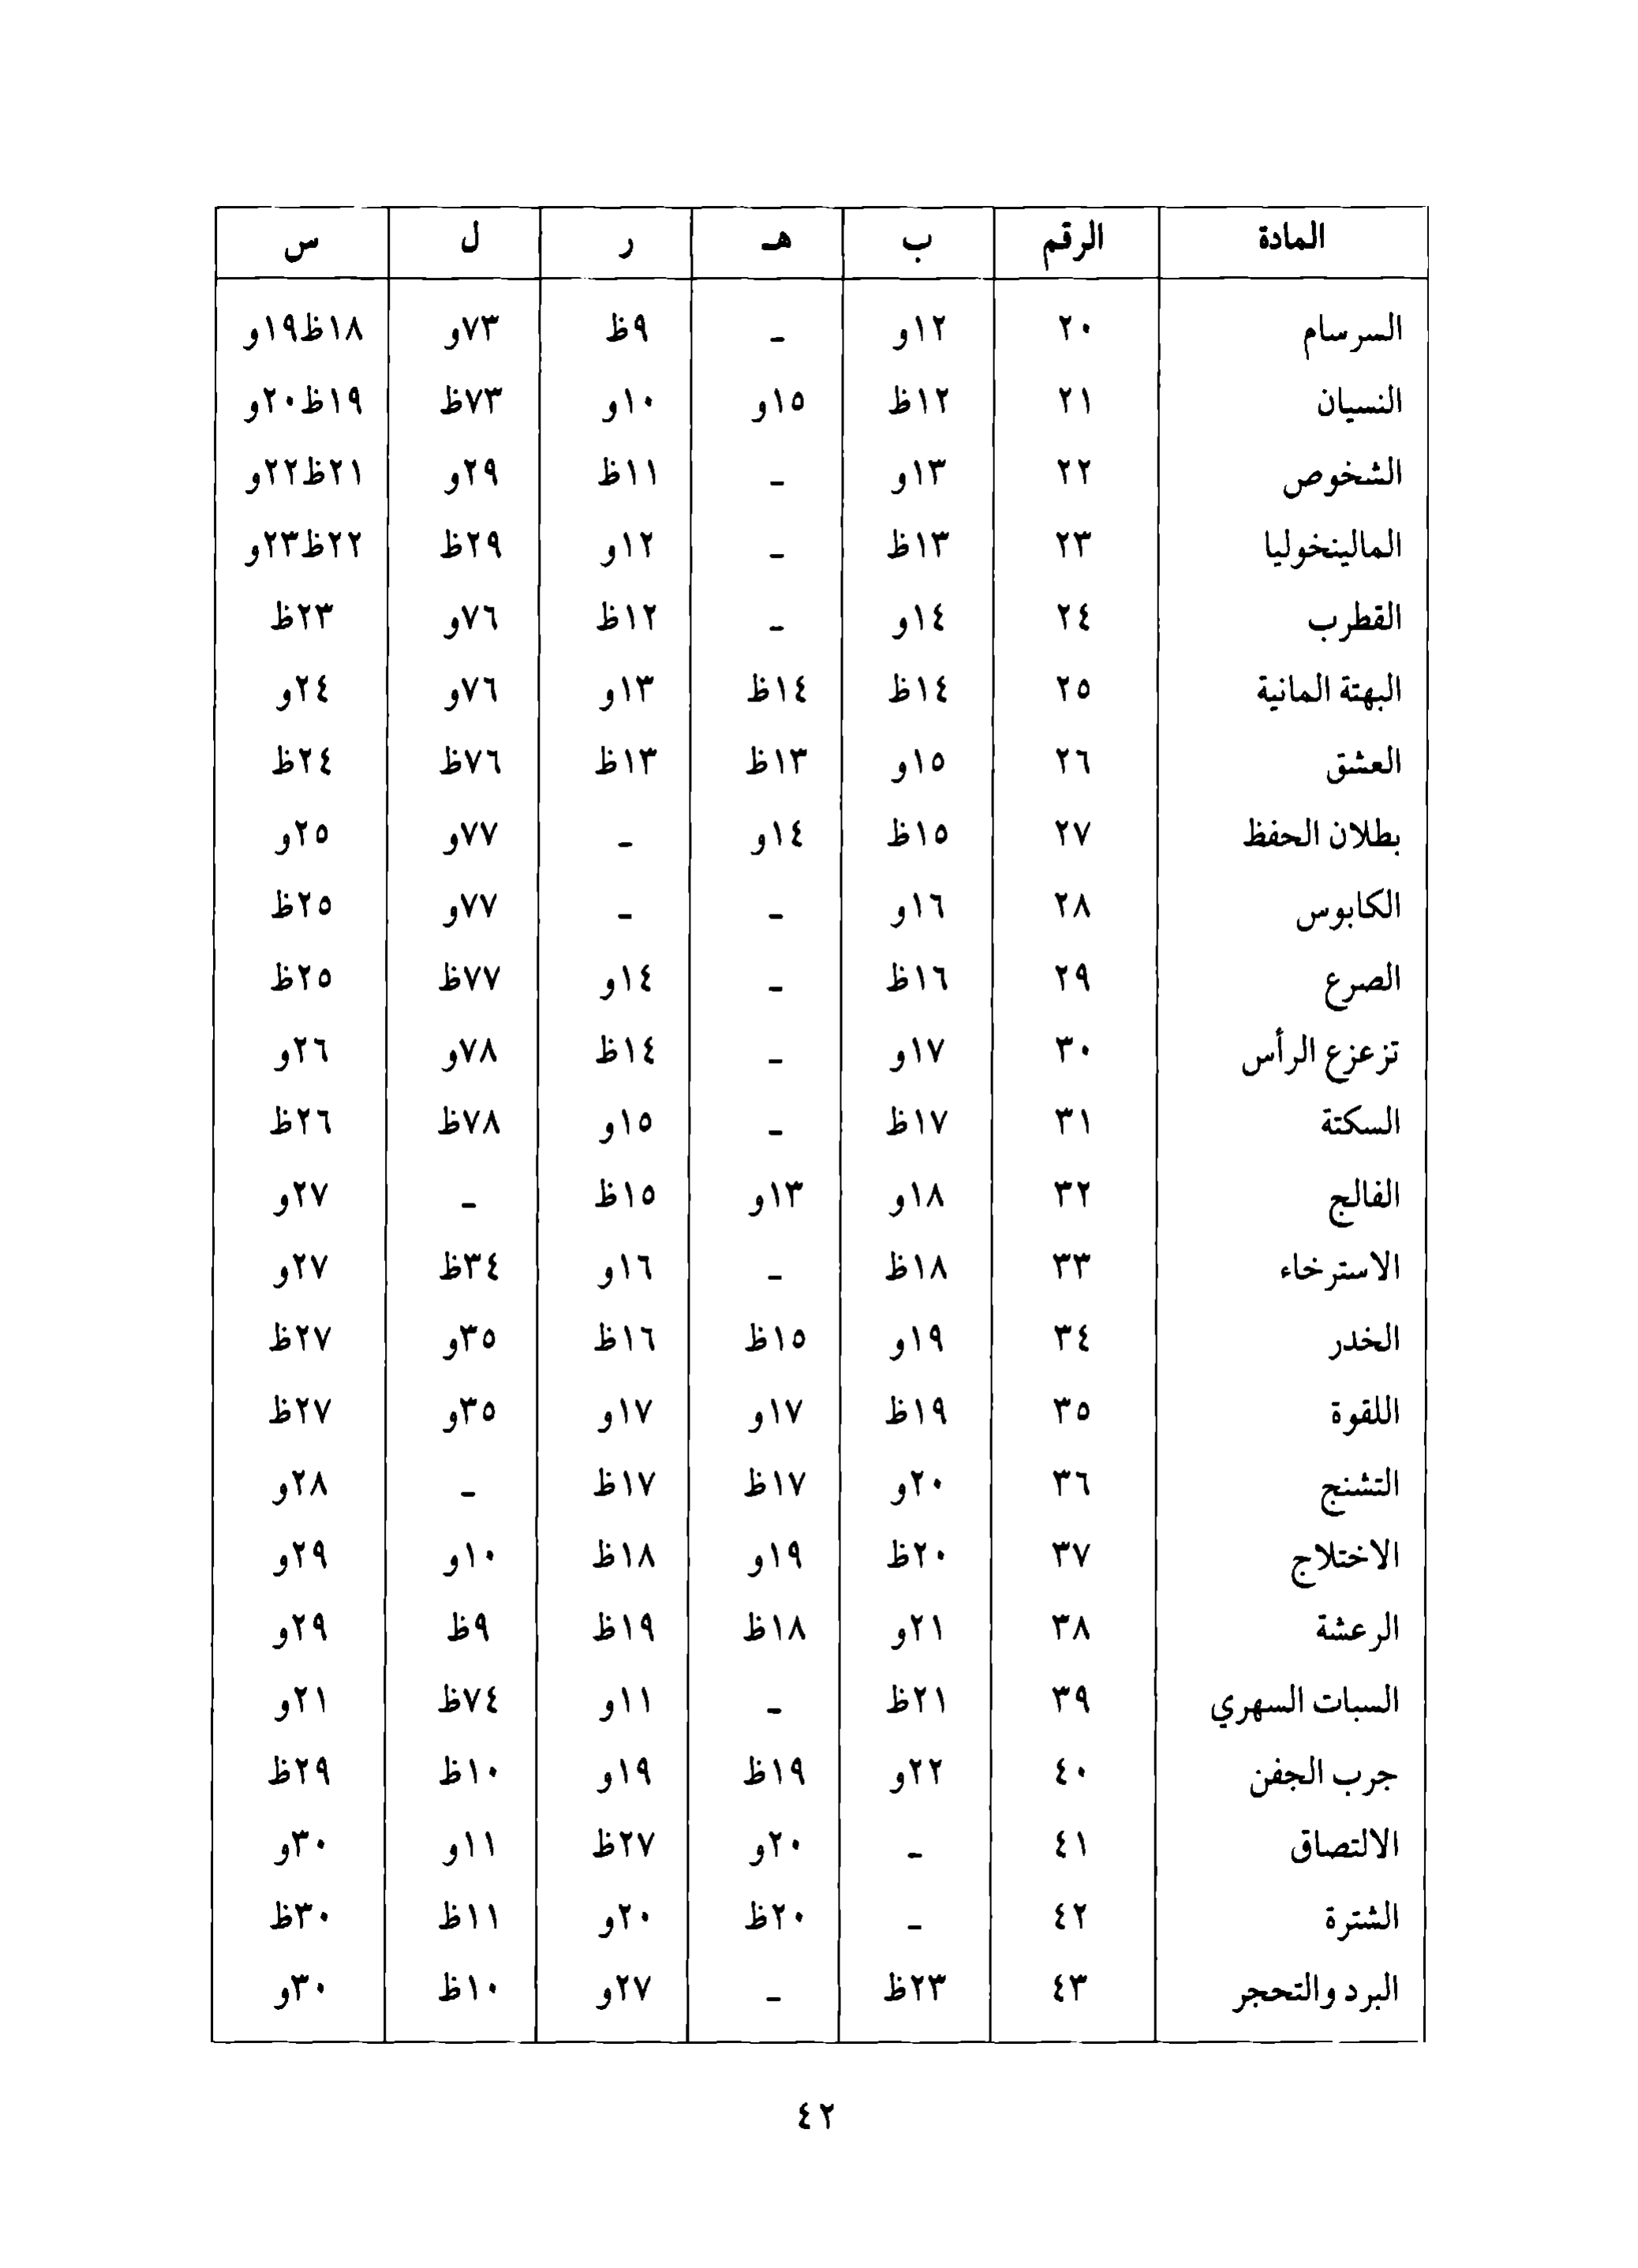 المادة الرقم ب هـ ر ل س
السرسام ٢٠ ١٢و - ٩ظ ٧٣و ١٨ظ١٩و
النسيان ٢١ ١٢ظ ١٥و ١٠و ٧٣ظ ١٩ظ٢٠و
الشخوص ٢٢ ١٣و - ١١ظ ٢٩و ٢١ظ٢٢و
المالينخوليا ٢٣ ١٣ظ - ١٢و ٢٩ظ ٢٢ظ٢٣و
القطرب ٢٤ ١٤و - ١٢ظ ٧٦و ٢٣ظ
البهتة المانية ٢٥ ١٤ظ ١٤ظ ١٣و ٧٦و ٢٤و
العشق ٢٦ ١٥و ١٣ظ ١٣ظ ٧٦ظ ٢٤ظ
بطلان الحفظ ٢٧ ١٥ظ ١٤و - ٧٧و ٢٥و
الكابوس ٢٨ ١٦و - - ٧٧و ٢٥ظ
الصرع ٢٩ ١٦ظ - ١٤و ٧٧ظ ٢٥ظ
تزعزع الرأس ٣٠ ١٧و - ١٤ظ ٧٨و ٢٦و
السكتة ٣١ ١٧ظ - ١٥و ٧٨ظ ٢٦ظ
الفالج ٣٢ ١٨و ١٣و ١٥ظ - ٢٧و
الاسترخاء ٣٣ ١٨ظ - ١٦و ٣٤ظ ٢٧و
الخدر ٣٤ ١٩و ١٥ظ ١٦ظ ٣٥و ٢٧ظ
اللقوة ٣٥ ١٩ظ ١٧و ١٧و ٣٥و ٢٧ظ
التشنج ٣٦ ٢٠و ١٧ظ ١٧ظ - ٢٨و
الاختلاج ٣٧ ٢٠ظ ١٩و ١٨ظ ١٠و ٢٩و
الرعشة ٣٨ ٢١و ١٨ظ ١٩ظ ٩ظ ٢٩و
السبات السهري ٣٩ ٢١ظ - ١١و ٧٤ظ ٢١و
جرب الجفن ٤٠ ٢٢و ١٩ظ ١٩و ١٠ظ ٢٩ظ
الالتصاق ٤١ - ٢٠و ٢٧ظ ١١و ٣٠و
الشترة ٤٢ - ٢٠ظ ٢٠و ١١ظ ٣٠ظ
البرد والتحجر ٤٣ ٢٣ظ - ٢٧و ١٠ظ ٣٠و
٤٢